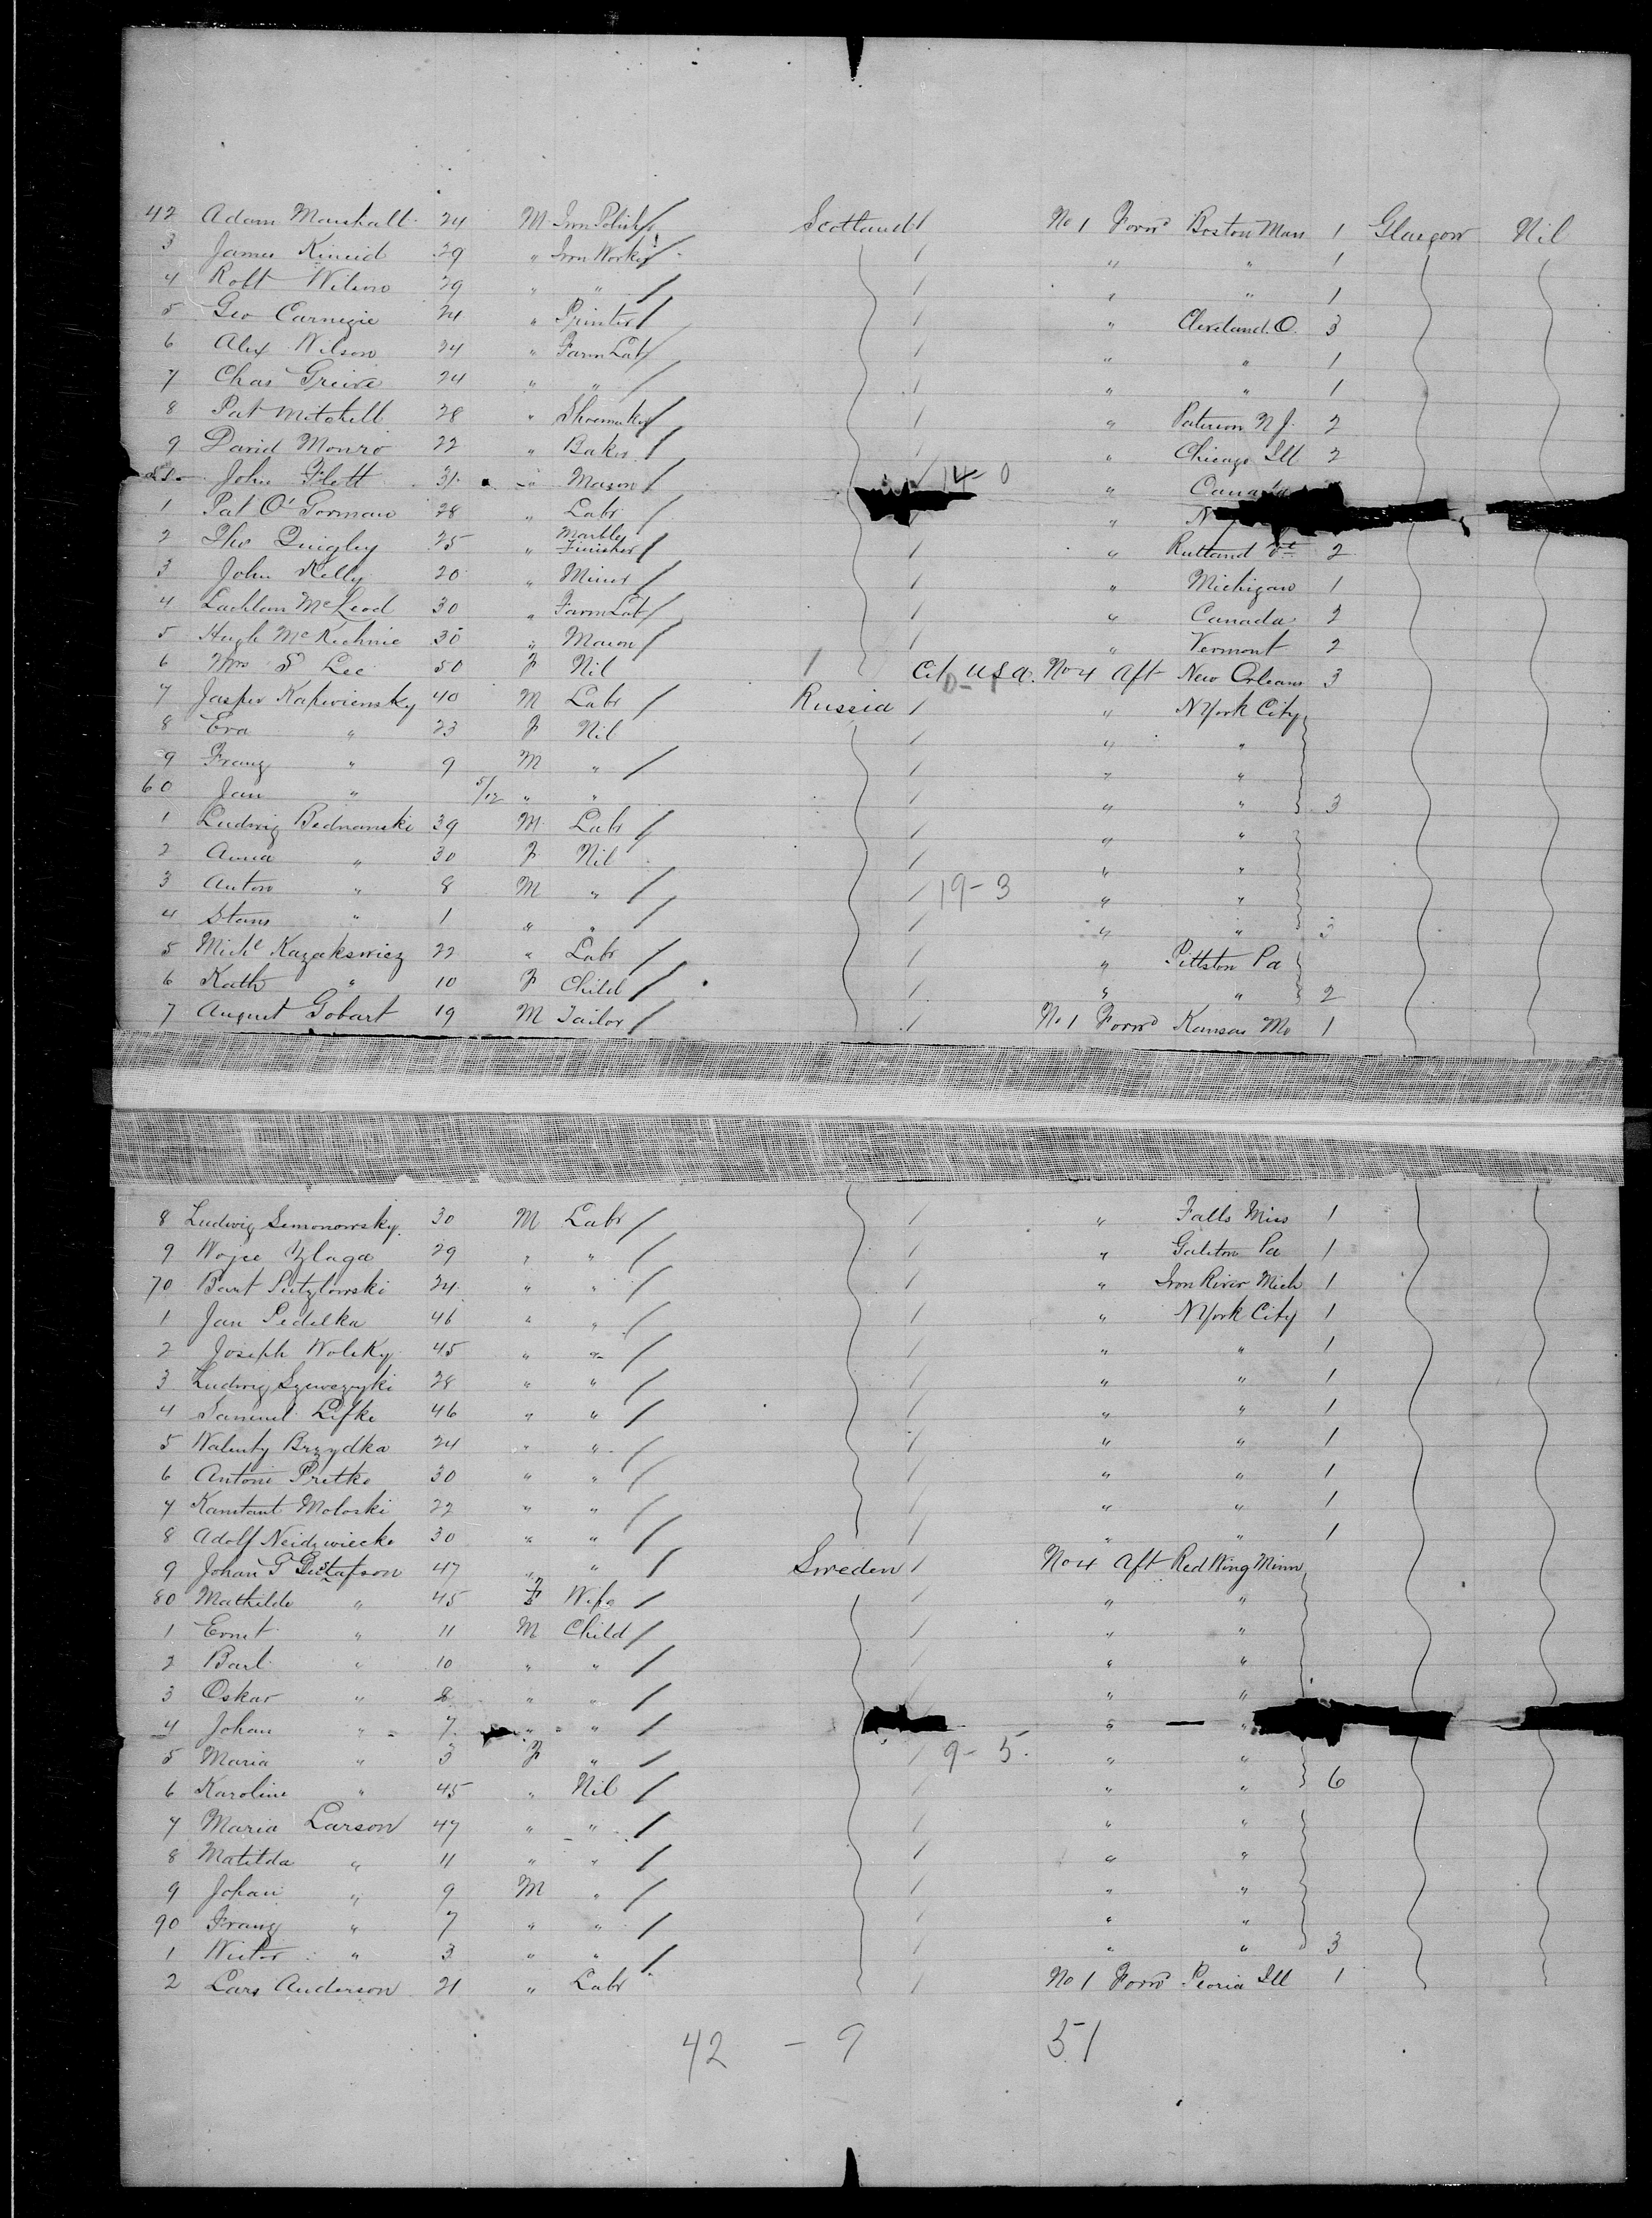 42 Adam Marshall 24 M Iron Polishr Scotland No 1 Forwd Boston Mass 1 Glasgow Nil
3 James Kincid 29 " Iron Worker " " 1
4 Robt Wilson 29 " " " " 1
5 Geo Carnegie 24 " Printer " Cleveland O. 3
6 Alex Wilson 24 " Farm Labr " " 1
7 Chas Greive 24 " " " " 1
8 Pat Mitchell 28 " Shoemaker " Paterson N J. 2
9 David Monro 22 " Baker " Chicago Ill 2
John Flett 31 " Mason 14-0 " Canada
1 Pat O'Gorman 28 " Labr " N
2 Tho Quigley 25 " Marble Finisher " Rutland Vt 2
3 John Kelly 20 " Miner " Michigan 1
4 Lachlan McLeod 30 " Farm Labr " Canada 2
5 Hugh McKechnie 30 " Mason " Vermont 2
6 Mrs S Lee 50 F Nil Cit USA. 0-1 No 4 Aft New Orleans 3
7 Jasper Kapwiensky 40 M Labr Russia " N York City
8 Eva " 23 F Nil " "
9 Franz " 9 M " " "
60 Jan " 5/12 " " " " 3
1 Ludwig Bednanski 39 M Labr " "
2 Anna " 30 F Nil " "
3 Anton " 8 M " 19-3 " "
4 Stans " 1 " " " " 3
5 Michl Kazakswicz 22 " Labr " Pittston Pa
6 Kath " 10 F Child " " 2
7 August Gobart 19 M Tailor No 1 Forwd Kansas Mo 1
8 Ludwig Semonowsky 30 M Labr " Falls Miss 1
9 Wojce Zlaga 29 " " " Galeton Pa 1
70 Bart Putzlowski 24 " " " Iron River Mich 1
1 Jan Pedelka 46 " " " N York City 1
2 Joseph Woleky 45 " " " " 1
3 Ludwig Szewczyki 28 " " " " 1
4 Samuel Lifke 46 " " " " 1
5 Walenty Brzydka 24 " " " " 1
6 Antoni Pritke 30 " " " " 1
7 Kanstant Moloski 22 " " " " 1
8 Adolf Neidzwiecke 30 " " " " 1
9 Johan G Gustafson 47 " " Sweden No 4 Aft Red Wing Minn
80 Mathilde " 45 F Wife " "
1 Ernst " 11 M Child " "
2 Barl " 10 " " " "
3 Oskar " 8 " " " "
4 Johan " 7 " " " "
5 Maria " 3 F " 9-5 " "
6 Karoline " 45 " Nil " " 6
7 Maria Larson 47 " " " "
8 Matilda " 11 " " " "
9 Johan " 9 M " " "
90 Franz " 7 " " " "
1 Wictor " 3 " " " " 3
2 Lars Anderson 21 " Labr No 1 Forwd Peoria Ill 1
42 - 9 51